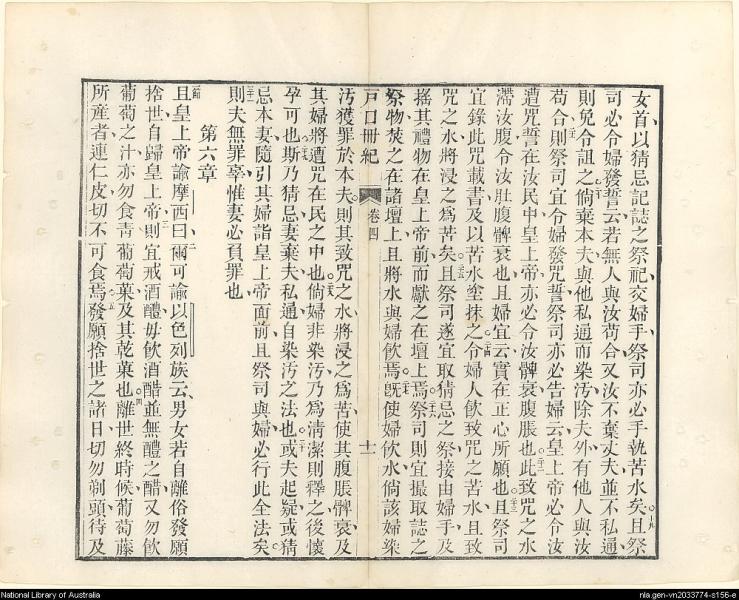 女首以猜忌記誌之祭祀交婦手祭司亦必手執苦水矣且祭
司必令婦發誓云若無人與汝苟合又汝不棄丈夫並不私通
則免令詛之倘棄本夫與他私通而染汚除夫外有他人與汝
苟合則祭司宜令婦發咒誓祭司亦必告婦云皇上帝必令汝
遭咒誓在汝民中皇上帝亦必令汝髀衰腹脹也此致咒之水
滯汝腹令汝肚腹髀衰也且婦宜云實在正心所願也且祭司
宜錄此咒載書及以苦水塗抹之令婦人飲致咒之苦水且致
咒之水將浸之為苦矣且祭司遂宜取猜忌之祭接由婦手及
搖其禮物在皇上帝前而獻之在壇上焉祭司則宜撮取誌之
祭物焚之在諸壇上且將水與婦飲焉旣使婦飲水倘該婦染
戶口冊紀 卷四 十一
汚獲罪於本夫則其致咒之水將浸之為苦使其腹脹髀衰及
其婦將遭咒在民之中也倘婦非染汚乃為清潔則釋之後懷
孕可也斯乃猜忌妻棄夫私通自染汚之法也或夫起疑或猜
忌本妻隨引其婦詣皇上帝面前且祭司與婦必行此全法矣
則夫無罪辜惟妻必負罪也
第六章
且皇上帝諭摩西曰爾可諭以色列族云男女若自離俗發願
捨世自歸皇上帝則宜戒酒醴毋飲酒醋並無醴之醋又勿飲
葡萄之汁亦勿食青葡萄菓及其乾菓也離世終時候葡萄藤
所產者連仁皮切不可食焉發願捨世之諸日切勿剃頭待及
National Library of Australia
nla.gen-vn2033774-s156-e